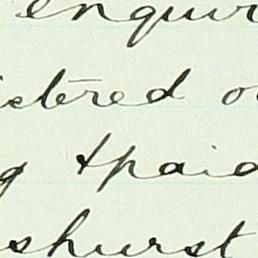 enquir
istered o
g & paid
shurst